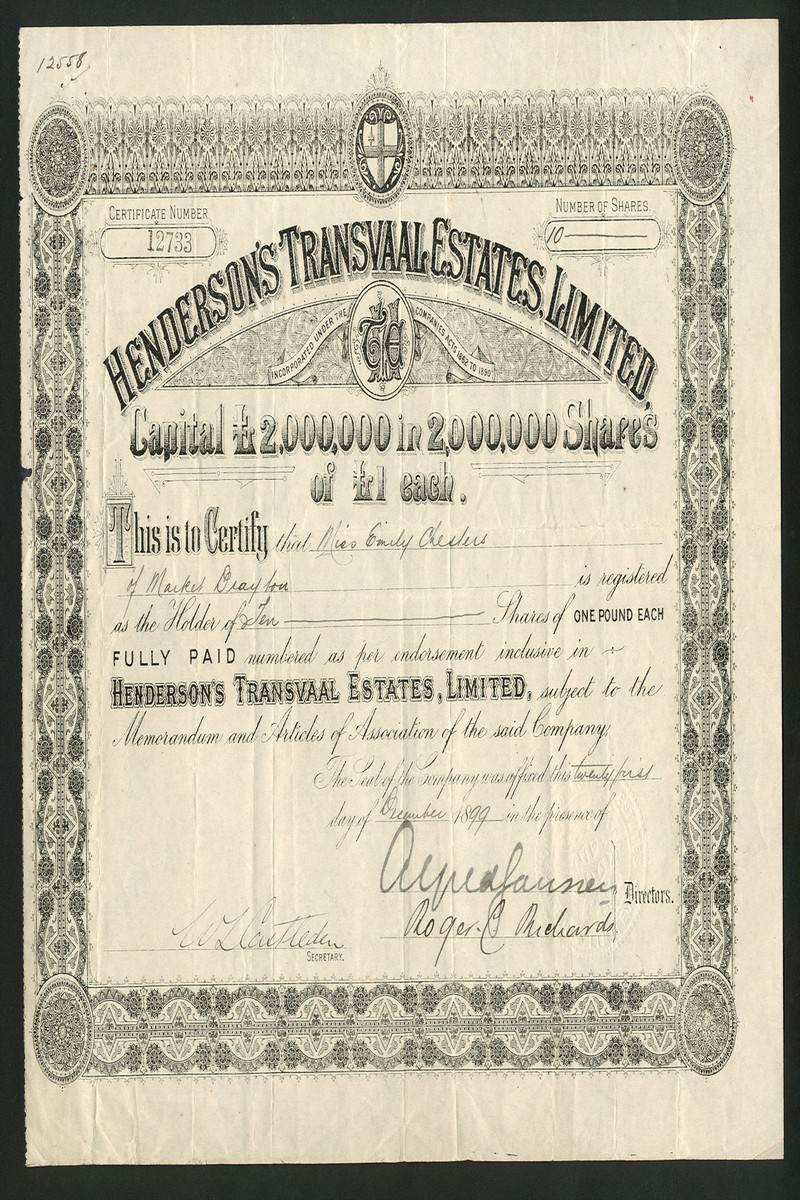 12558
CERTIFICATE NUMBER
12733
NUMBER OF SHARES.
10
HENDERSON'S TRANSVAAL ESTATES, LIMITED,
INCORPORATED UNDER THE COMPANIES ACTS 1862 TO 1890
Capital £2,000,000 in 2,000,000 Shares
of £1 each.
This is to Certify that Miss Emily Chesters
of Market Drayton is registered
as the Holder of Ten Shares of ONE POUND EACH
FULLY PAID numbered as per endorsement inclusive in
HENDERSON'S TRANSVAAL ESTATES, LIMITED, subject to the
Memorandum and Articles of Association of the said Company.
The Seal of the Company was affixed this twenty first
day of December 1899 in the presence of
Alfred Jansen
Directors.
Roger C Richards
W L Castleden
SECRETARY.